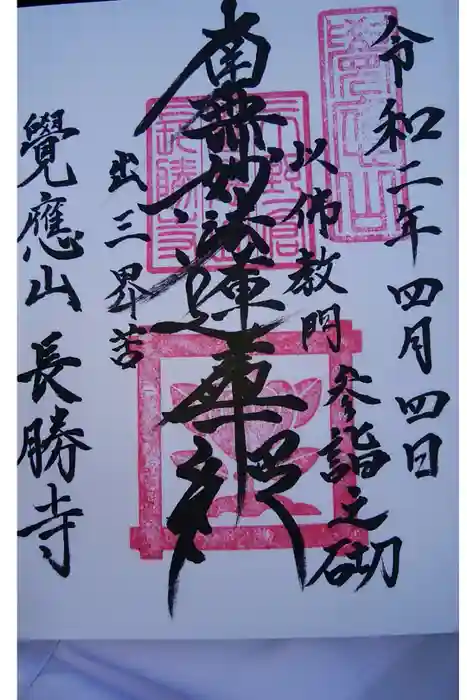 令和二年四月四日
参詣之砌
以佛教門
南無妙法蓮華経
出三界苦
覺應山長勝寺
覺應山
長勝寺